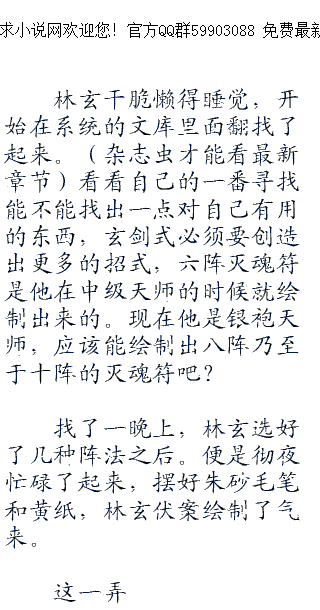 求小说网欢迎您！官方QQ群59903088 免费最新
林玄干脆懒得睡觉，开
始在系统的文库里面翻找了
起来。（杂志虫才能看最新
章节）看看自己的一番寻找
能不能找出一点对自己有用
的东西，玄剑式必须要创造
出更多的招式，六阵灭魂符
是他在中级天师的时候就绘
制出来的。现在他是银袍天
师，应该能绘制出八阵乃至
于十阵的灭魂符吧？
找了一晚上，林玄选好
了几种阵法之后。便是彻夜
忙碌了起来，摆好朱砂毛笔
和黄纸，林玄伏案绘制了气
来。
这一弄